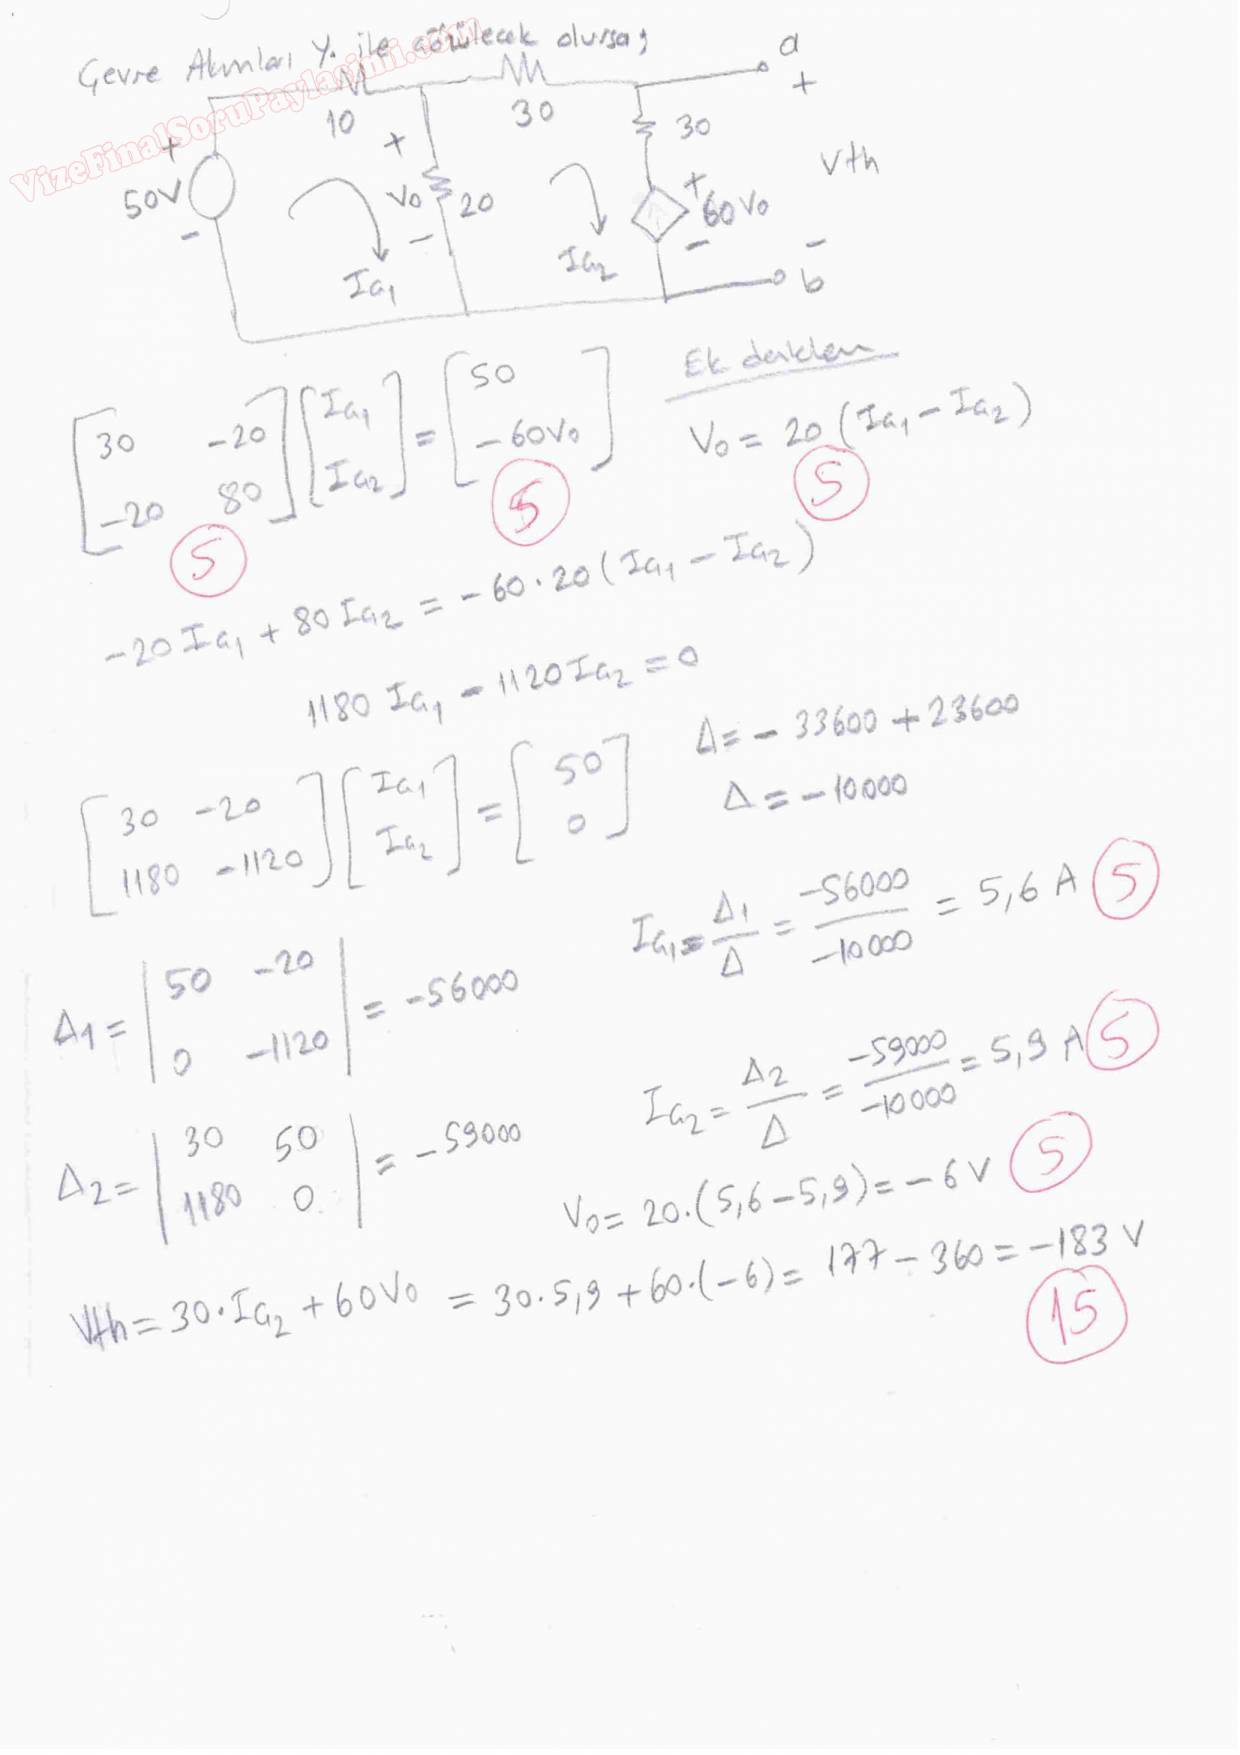 Çevre Akımları Y. ile çözülecek olursa;
VizeFinalSoruPaylasimi.com
a
+
10
30
30
+
50V
-
+
Vo
-
20
Ia1
Ia2
+
60Vo
-
Vth
-
b
[30 -20; -20 80] [Ia1; Ia2] = [50; -60Vo]
5
5
Ek denklem
Vo = 20 (Ia1 - Ia2)
5
-20 Ia1 + 80 Ia2 = -60.20 (Ia1 - Ia2)
1180 Ia1 - 1120 Ia2 = 0
[30 -20; 1180 -1120] [Ia1; Ia2] = [50; 0]
Δ = -33600 + 23600
Δ = -10000
Δ1 = |50 -20; 0 -1120| = -56000
Ia1 = Δ1/Δ = -56000/-10000 = 5,6 A
5
Δ2 = |30 50; 1180 0| = -59000
Ia2 = Δ2/Δ = -59000/-10000 = 5,9 A
5
Vo = 20.(5,6 - 5,9) = -6 V
5
Vth = 30.Ia2 + 60Vo = 30.5,9 + 60.(-6) = 177 - 360 = -183 V
15